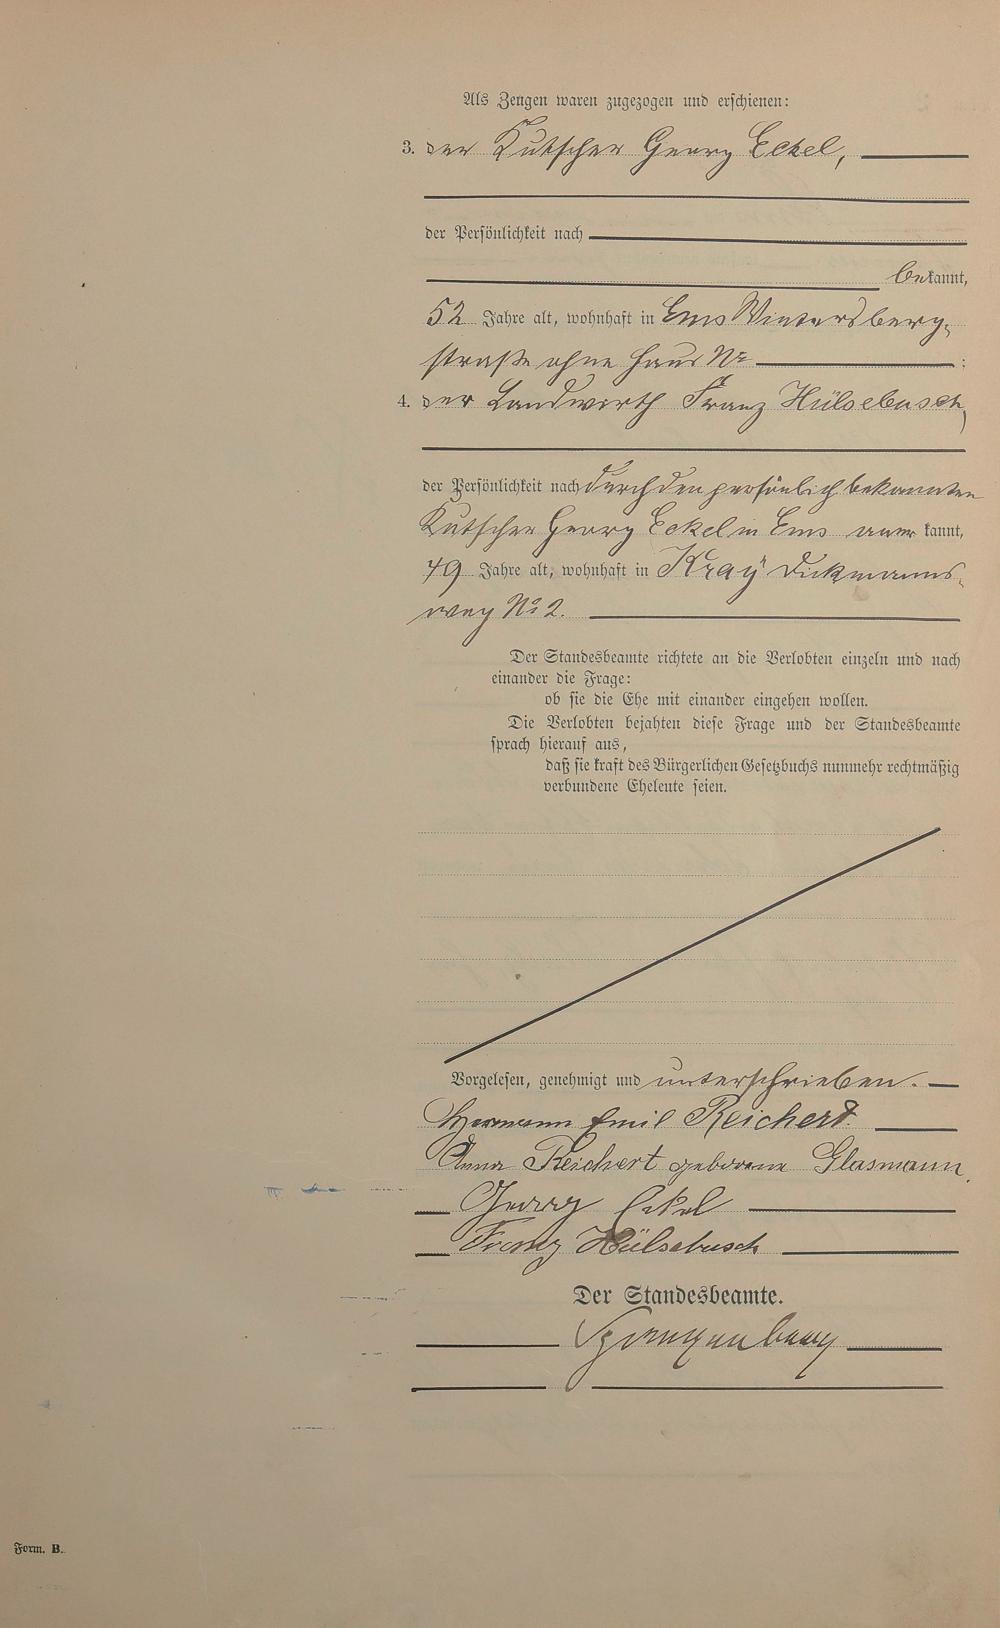 Als Zeugen waren zugezogen und erschienen:
3. der Kutscher Georg Eckel,
der Persönlichkeit nach
bekannt,
52 Jahre alt, wohnhaft in Ems Wintersberg-
straße ohne Haus No :
4. der Landwirth Franz Hülsebusch,
der Persönlichkeit nach durch den persönlich bekannten
Kutscher Georg Eckel in Ems anerkannt,
49 Jahre alt, wohnhaft in Kray Dickmanns-
weg No 2.
Der Standesbeamte richtete an die Verlobten einzeln und nach
einander die Frage:
ob sie die Ehe mit einander eingehen wollen.
Die Verlobten bejahten diese Frage und der Standesbeamte
sprach hierauf aus,
daß sie kraft des Bürgerlichen Gesetzbuchs nunmehr rechtmäßig
verbundene Eheleute seien.
Vorgelesen, genehmigt und unterschrieben.
Hermann Emil Reichert.
Anna Reichert geborene Glasmann.
Georg Eckel
Franz Hülsebusch
Der Standesbeamte.
Form. B.